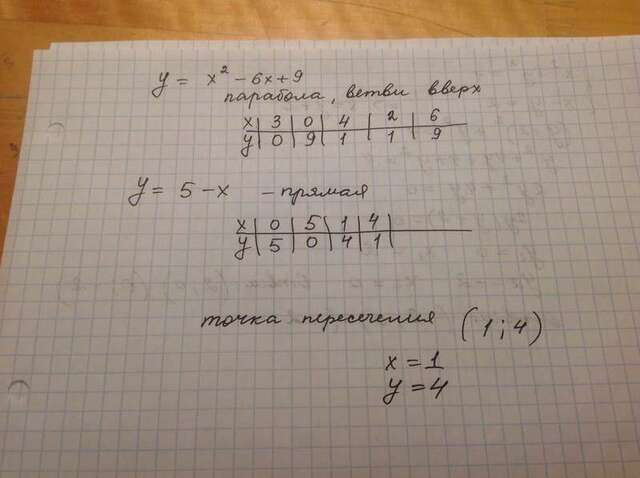 y = x² - 6x + 9
парабола, ветви вверх
x | 3 | 0 | 4 | 2 | 6
y | 0 | 9 | 1 | 1 | 9
y = 5 - x - прямая
x | 0 | 5 | 1 | 4 |
y | 5 | 0 | 4 | 1 |
точка пересечения (1; 4)
x = 1
y = 4